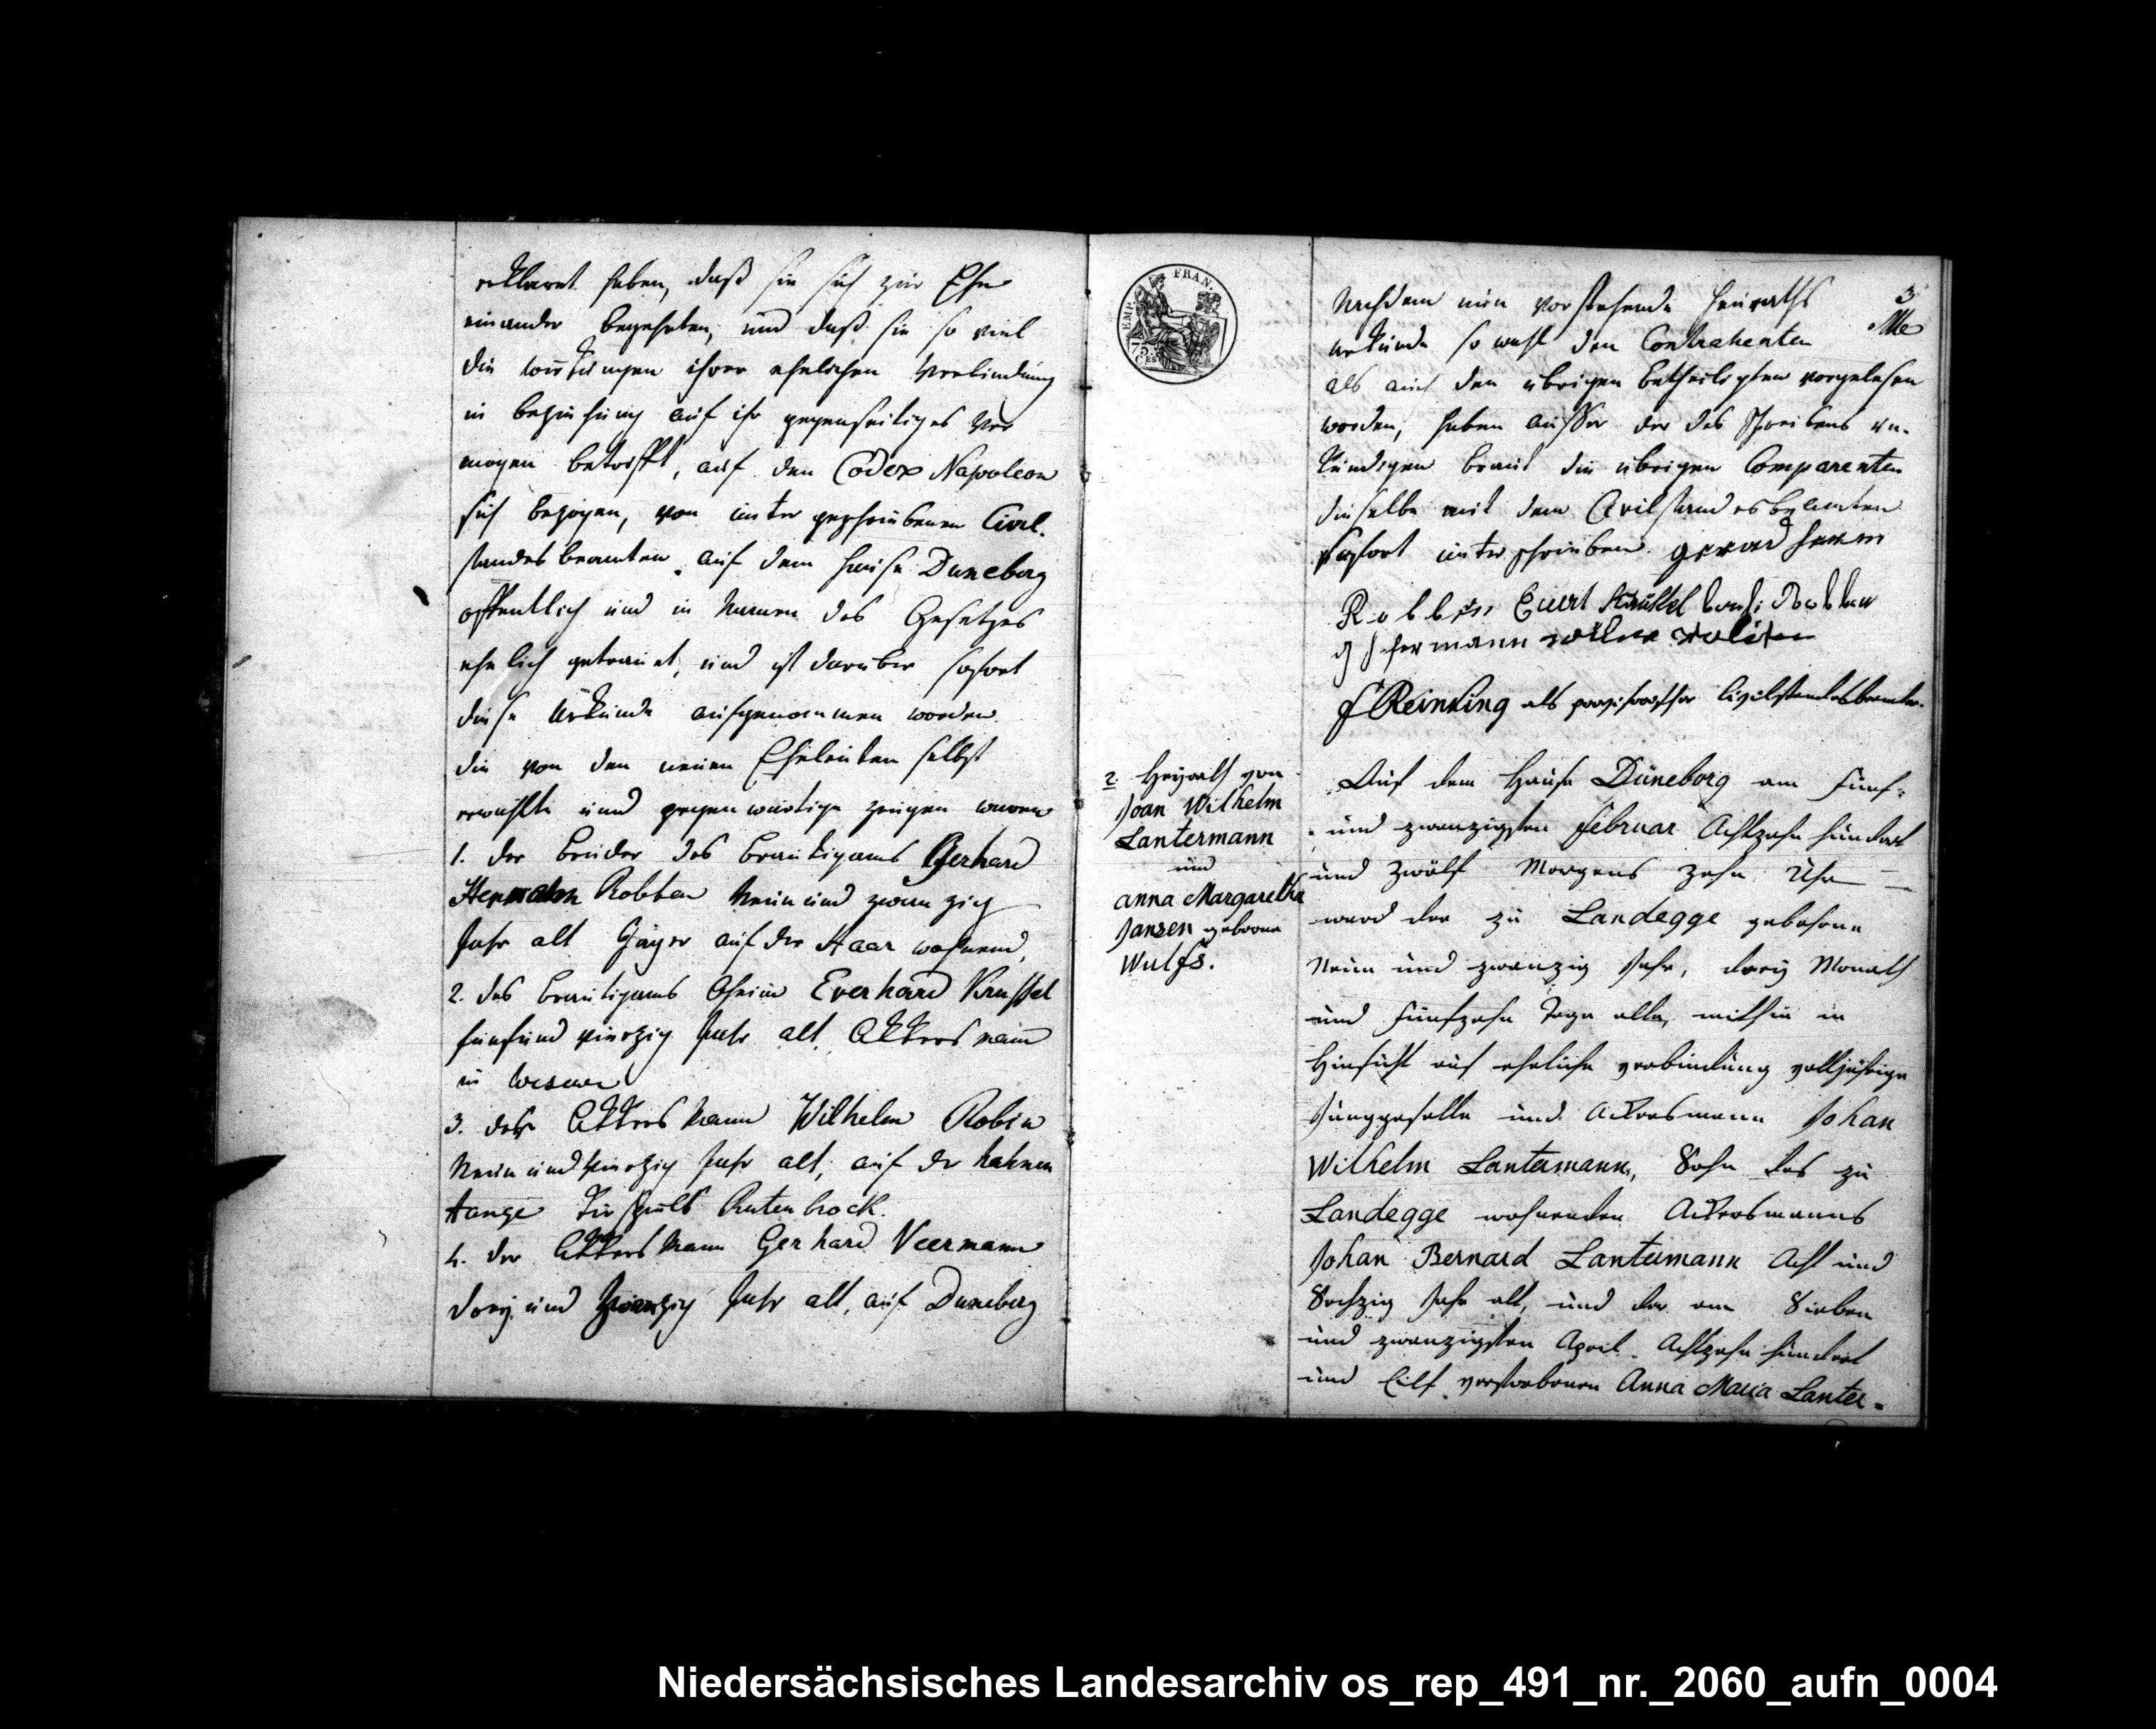 erklaret haben, daß sie sich zur Ehe
einander begehrten, und daß sie so viel
die wirkungen ihrer ehelichen Verbindung
in beziehung auf ihr gegenseitiges Ver
mogen betrifft, auf den Codex Napoleon
sich bezogen, von unter geschriebenen Civil.
standes beamten auf dem Hause Duneborg
offentlich und in Namen des Gesetzes
ehelich getrauet, und ist daruber sofort
diese Urkunde aufgenommen worden.
die von den neuen Eheleuten selbst
erwahlte und gegenwartige zeugen waren
1. der bruder des brautigams Gerhard
Hermann Robben Neun und zwanzig
Jahr alt auf der Haar wohnend,
2. des brautigams Oheim Everhard Krussel
funfund vierzig Jahr alt Akkersmann
in Wesuwe
3. der Akkersmann Wilhelm Robin
Neun und vierzig Jahr alt, auf der hahnen
tange Kirspiels Rutenbrock.
4. der Akkersmann Gerhard Veermann
drey und Jahr alt, auf Duneborg
EMP. FRAN.
75. CES
3
Nachdem nun vorstehende Heiraths
urkunde so wohl den Contrahenten
als auch den ubrigen betheiligten vorgelesen
worden, haben ausser der des Schreibens un-
kundigen braut die ubrigen Comparenten
dieselbe mit dem Civilstandesbeamten
sofort unterschrieben. gerard herm
Robben Evert Krüssel
hermann
J Reinking als provisorischer Civilstandesbeamter.
2. Heyrath von
Joan Wilhelm
Lantermann
und
anna Margaretha
Jansen geborne
Wulfs.
Auf dem Hause Düneborg am Fünf-
und zwanzigsten Februar Achtzehn hundert
und Zwölf Morgens Zehn Uhr
ward der zu Landegge gebohrne
Neun und zwanzig Jahr, drey Monath
und Fünfzehn Tage alte, mithin in
Hinsicht auf eheliche verbindung volljährige
Junggeselle und Ackersmann Johan
Wilhelm Lantermann, Sohn des zu
Landegge wohnenden Ackersmanns
Johan Bernard Lantermann Acht und
Sechzig Jahr alt, und der am Sieben
und zwanzigsten April Achtzehn hundert
und Eilf verstorbenen Anna Maria Lanter-
Niedersächsisches Landesarchiv os_rep_491_nr._2060_aufn_0004